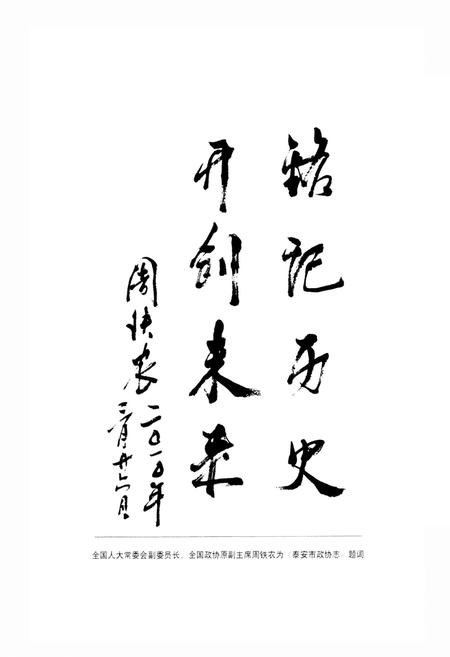 铭记历史
开创未来
周铁农
二〇一〇年
三月廿六日
全国人大常委会副委员长、全国政协原副主席周铁农为《泰安市政协志》题词